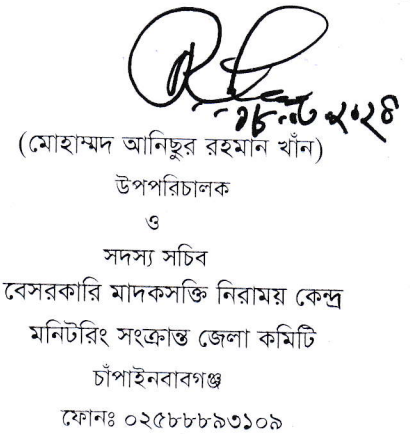 (মোহাম্মদ আনিছুর রহমান খাঁন)
উপপরিচালক
ও
সদস্য সচিব
বেসরকারি মাদকসক্তি নিরাময় কেন্দ্র
মনিটরিং সংক্রান্ত জেলা কমিটি
চাঁপাইনবাবগঞ্জ
ফোনঃ ০২৫৮৮৮৯৩১০৯